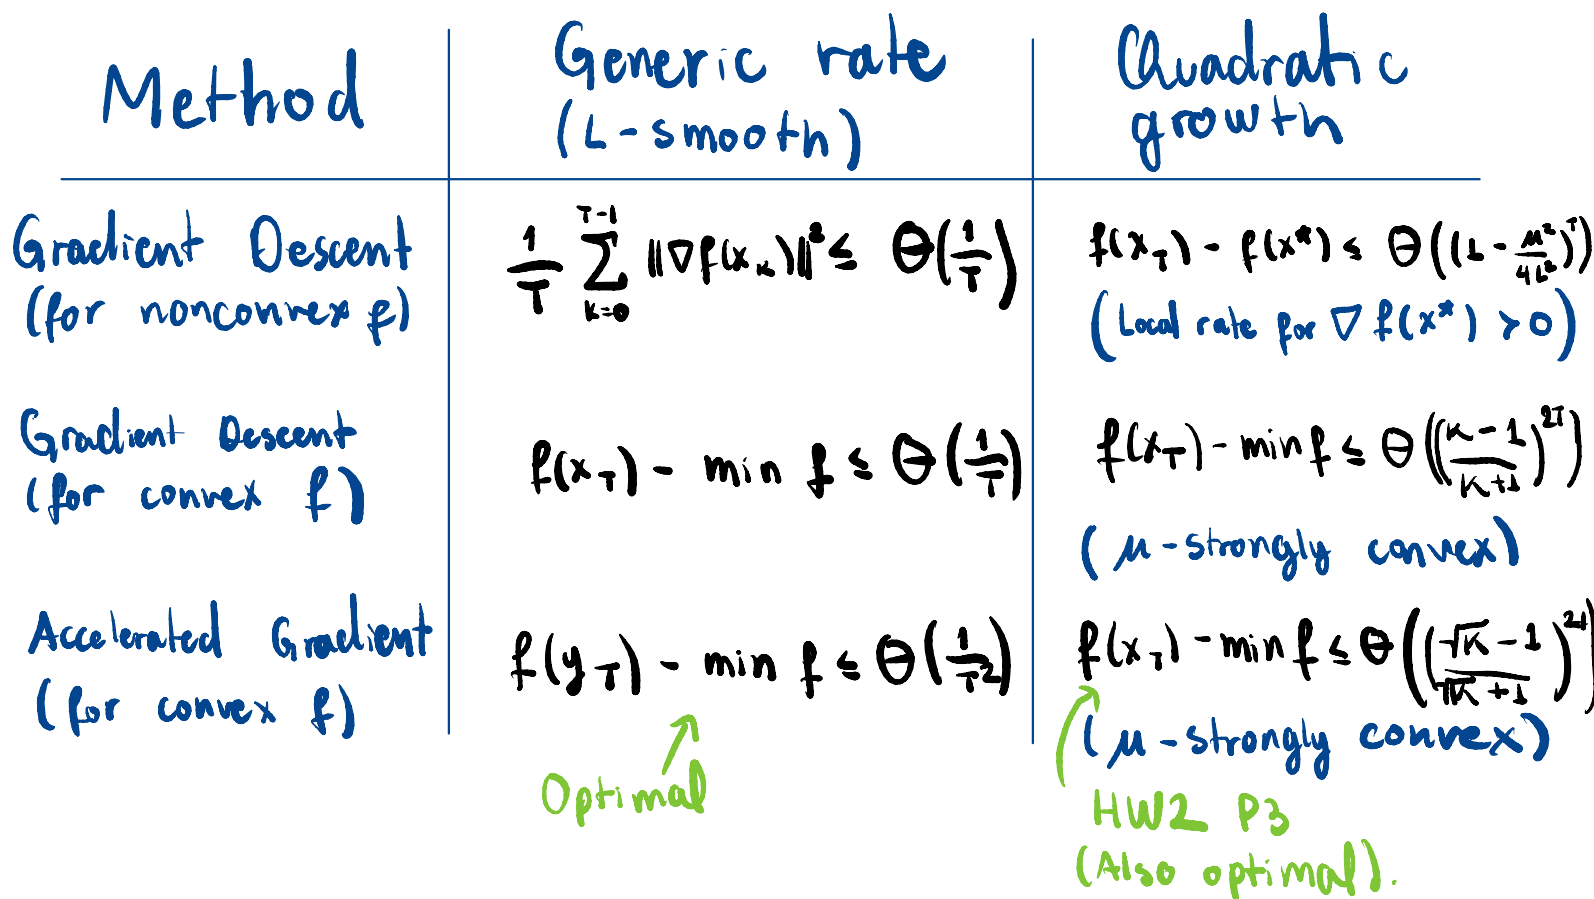 Method
Generic rate
(L-smooth)
Quadratic
growth
Gradient Descent
(for nonconvex f)
1/T ∑_{k=0}^{T-1} ||∇f(x_k)||² ≤ Θ(1/T)
f(x_T) - f(x*) ≤ Θ((1 - μ²/4L²)^T)
(Local rate for ∇f(x*) > 0)
Gradient Descent
(for convex f)
f(x_T) - min f ≤ Θ(1/T)
f(x_T) - min f ≤ Θ((κ-1/κ+1)^{2T})
(μ-strongly convex)
Accelerated Gradient
(for convex f)
f(y_T) - min f ≤ Θ(1/T²)
f(x_T) - min f ≤ Θ((√κ-1/√κ+1)^{2T})
(μ-strongly convex)
Optimal
HW2 P3
(Also optimal).